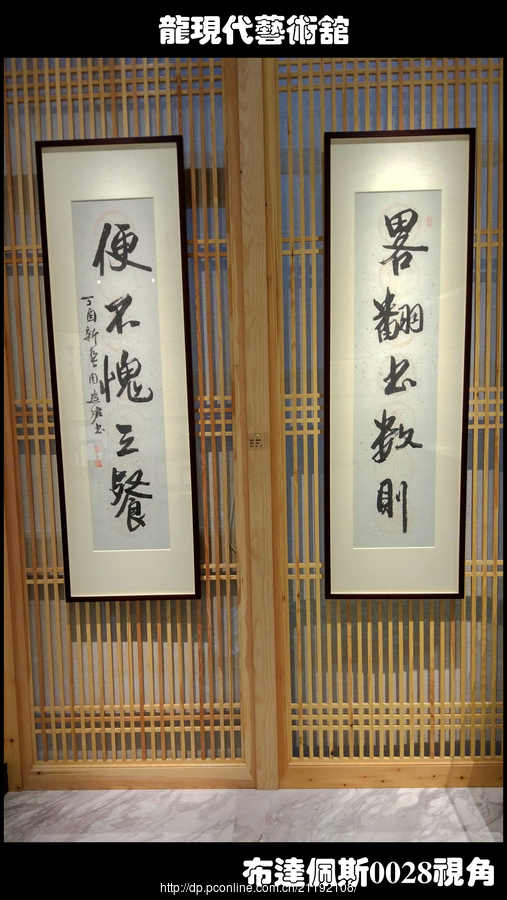 龍現代藝術舘
畧翻书数則
便不愧三餐
丁酉新春周
布達佩斯0028視角
http://dp.pconline.com.cn/21192108/